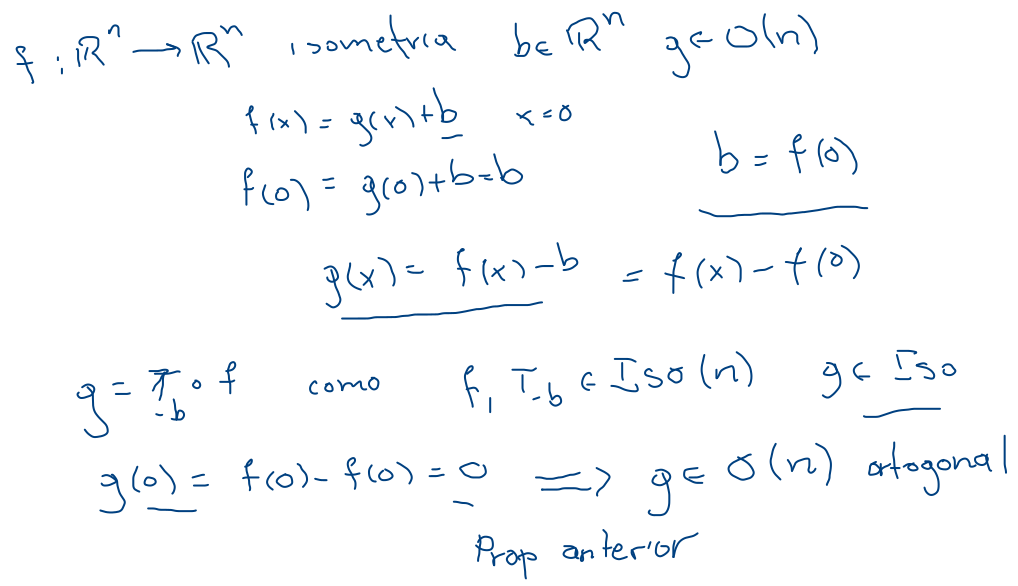 f : ℝⁿ → ℝⁿ isometria b ∈ ℝⁿ g ∈ O(n)
f(x) = g(x) + b x = 0
f(0) = g(0) + b = b b = f(0)
g(x) = f(x) - b = f(x) - f(0)
g = T₋b ∘ f como f, T₋b ∈ Iso(n) g ∈ Iso
g(0) = f(0) - f(0) = 0 ⟹ g ∈ O(n) ortogonal
Prop anterior